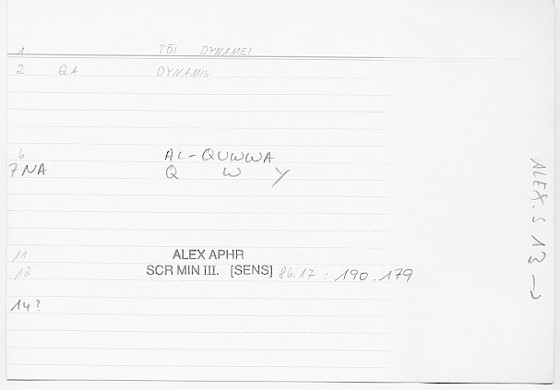 1 TŌI DYNAMEI
2 QA DYNAMIS
6 AL-QUWWA
7 NA Q W Y
11 ALEX APHR
12 SCR MIN III. [SENS] 86.17 : 190.179
14?
ALEX. S 13 →